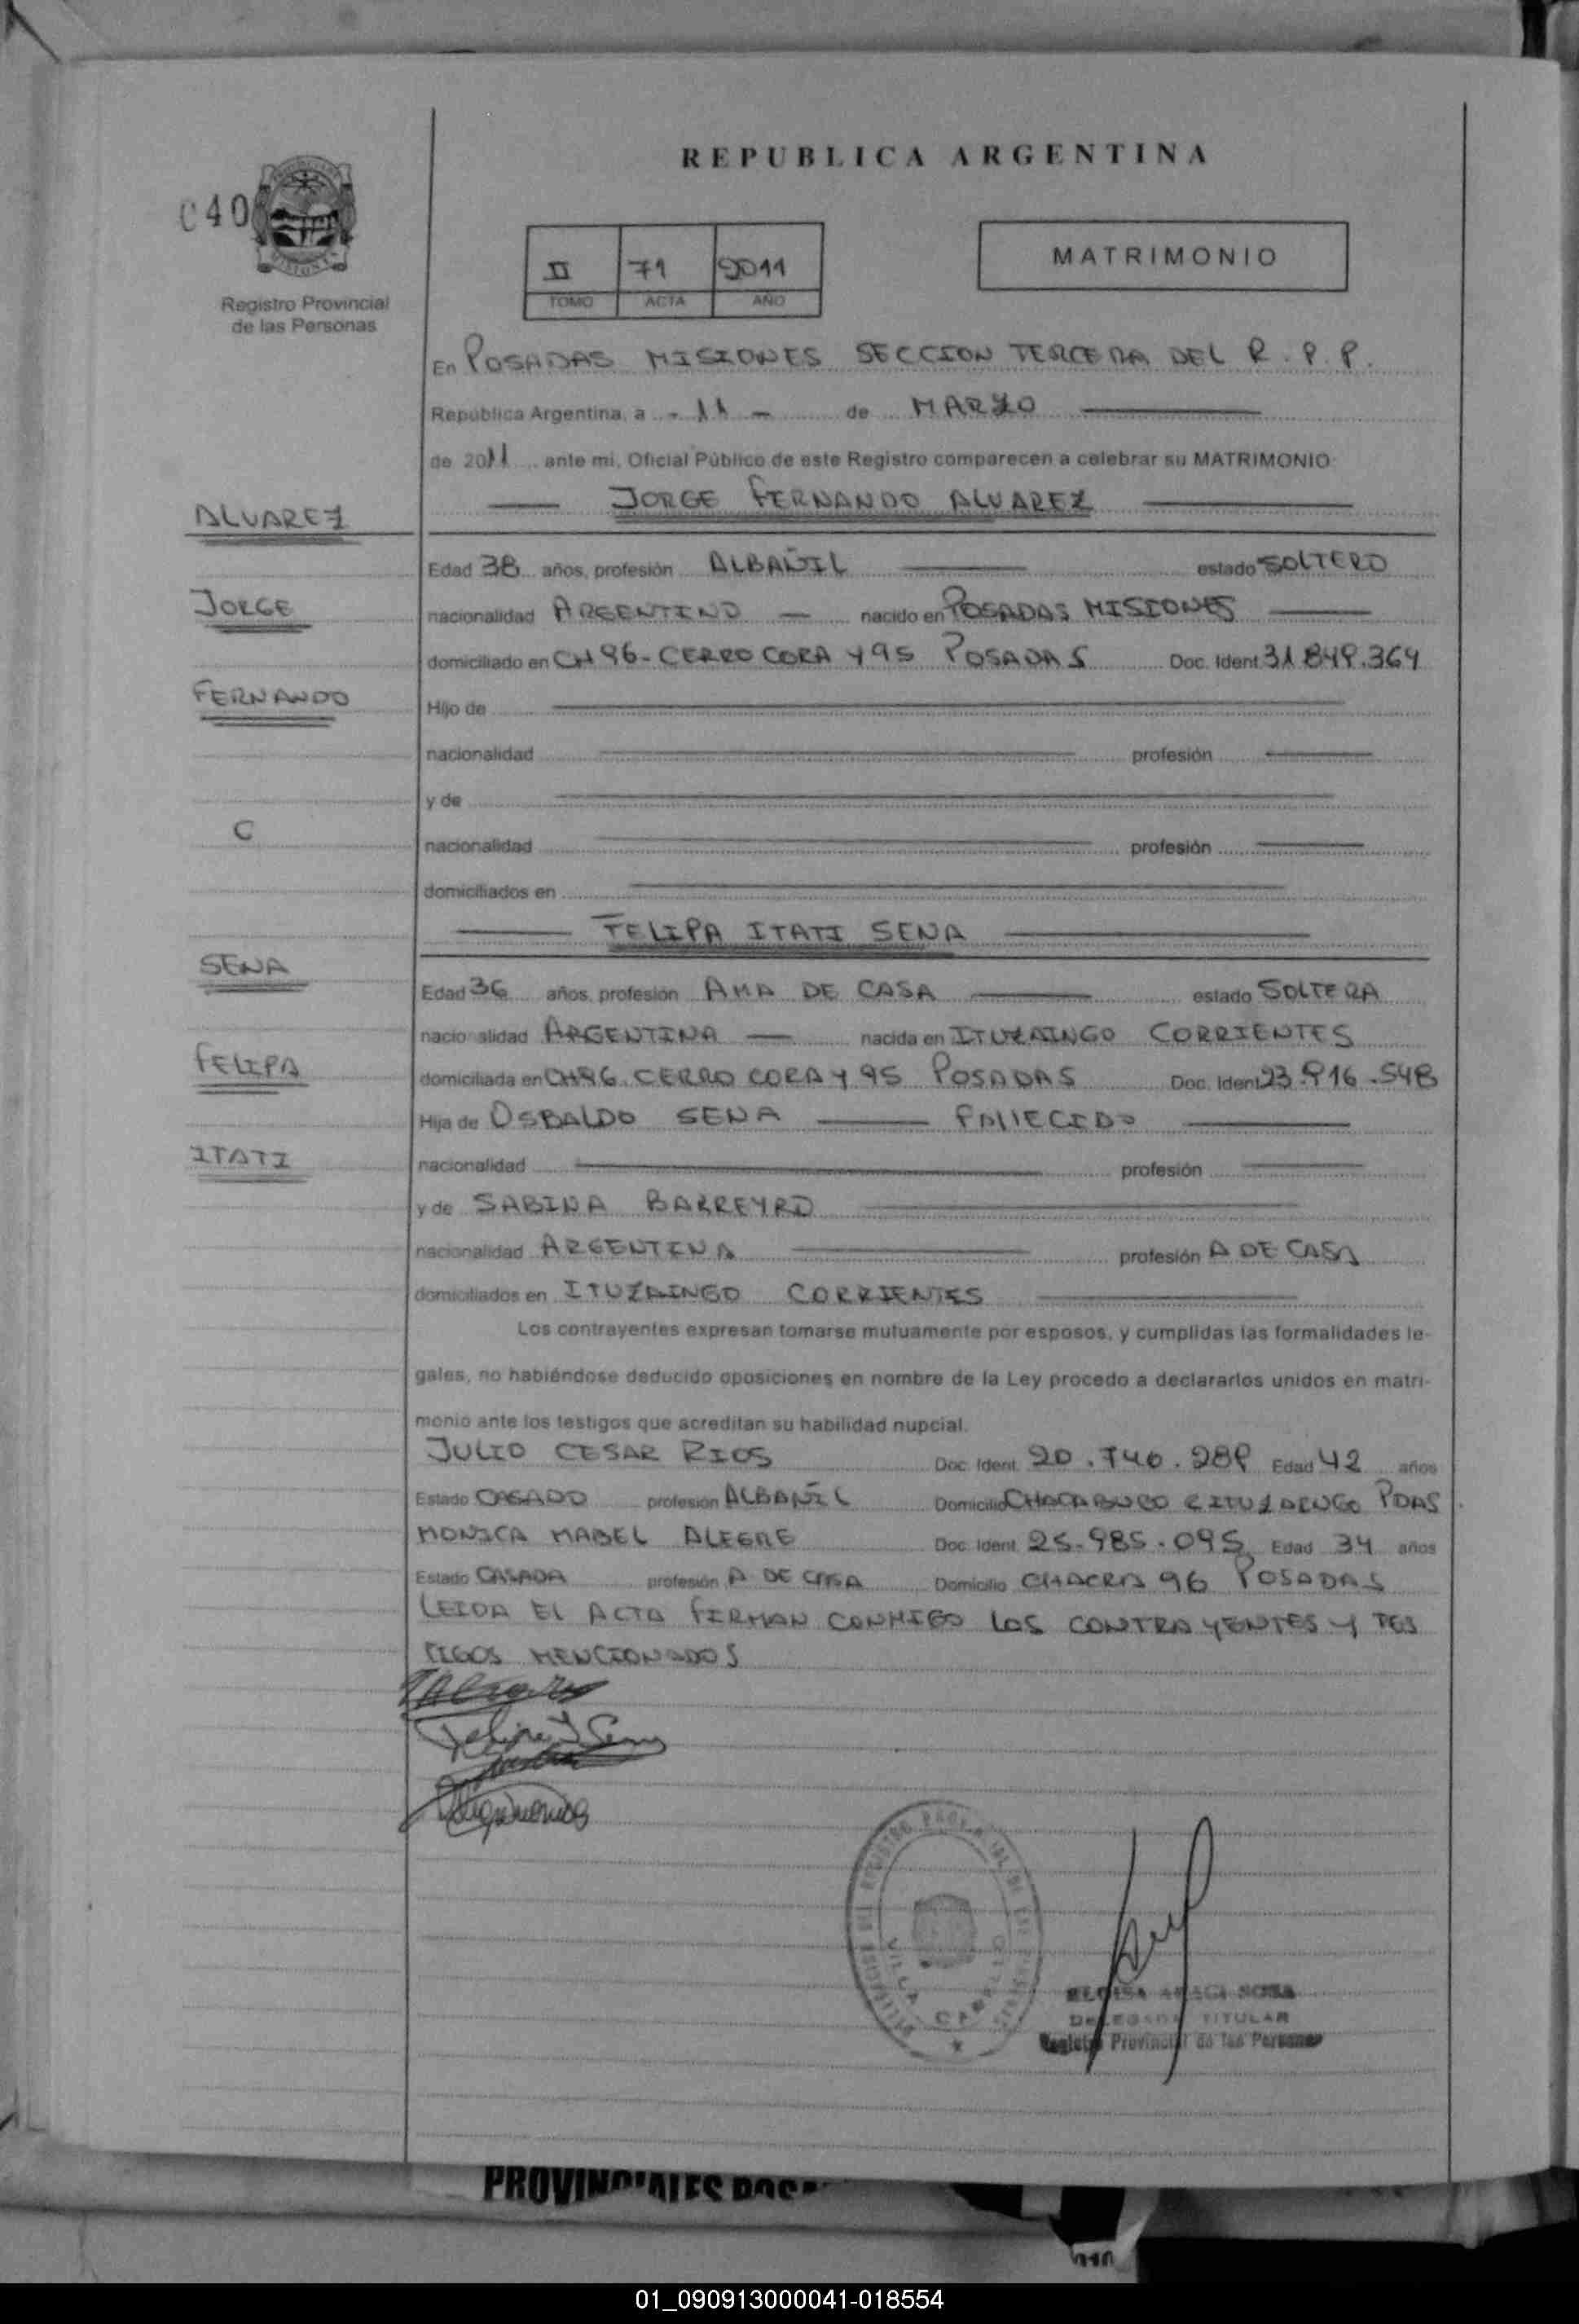 REPUBLICA ARGENTINA
040
MATRIMONIO
II 71 2011
TOMO ACTA AÑO
Registro Provincial
de las Personas
En POSADAS MISIONES SECCION TERCERA DEL R.P.P.
República Argentina, a - 11 - de MARZO
de 2011 ante mi, Oficial Público de este Registro comparecen a celebrar su MATRIMONIO
JORGE FERNANDO ALVAREZ
ALVAREZ
Edad 38 años, profesión ALBAÑIL estado SOLTERO
JORGE
nacionalidad ARGENTINO nacido en POSADAS MISIONES
domiciliado en CH 96 - CERRO CORA Y 95 POSADAS Doc. Ident. 31.849.364
FERNANDO
Hijo de
nacionalidad profesión
y de
C
nacionalidad profesión
domiciliados en
FELIPA ITATI SENA
SENA
Edad 36 años, profesión AMA DE CASA estado SOLTERA
nacionalidad ARGENTINA nacida en ITUZAINGO CORRIENTES
FELIPA
domiciliada en CH 96. CERRO CORA Y 95 POSADAS Doc. Ident. 23.916.548
Hija de OSBALDO SENA FALLECIDO
ITATI
nacionalidad profesión
y de SABINA BARREYRO
nacionalidad ARGENTINA profesión A DE CASA
domiciliados en ITUZAINGO CORRIENTES
Los contrayentes expresan tomarse mutuamente por esposos, y cumplidas las formalidades le-
gales, no habiéndose deducido oposiciones en nombre de la Ley procedo a declararlos unidos en matri-
monio ante los testigos que acreditan su habilidad nupcial.
JULIO CESAR RIOS Doc. Ident. 20.740.289 Edad 42 años
Estado CASADO profesión ALBAÑIL Domicilio CHACABUCO E ITUZAINGO PDAS
MONICA MABEL ALEGRE Doc. Ident. 25.985.095 Edad 34 años
Estado CASADA profesión A DE CASA Domicilio CHACRA 96 POSADAS
LEIDA EL ACTA FIRMAN CONMIGO LOS CONTRAYENTES Y TES
TIGOS MENCIONADOS
Felipa I Sena
VILLA CABELLO
ELOISA ARACI SOSA
DELEGADA TITULAR
Registro Provincial de las Personas
PROVINCIALES
01_090913000041-018554